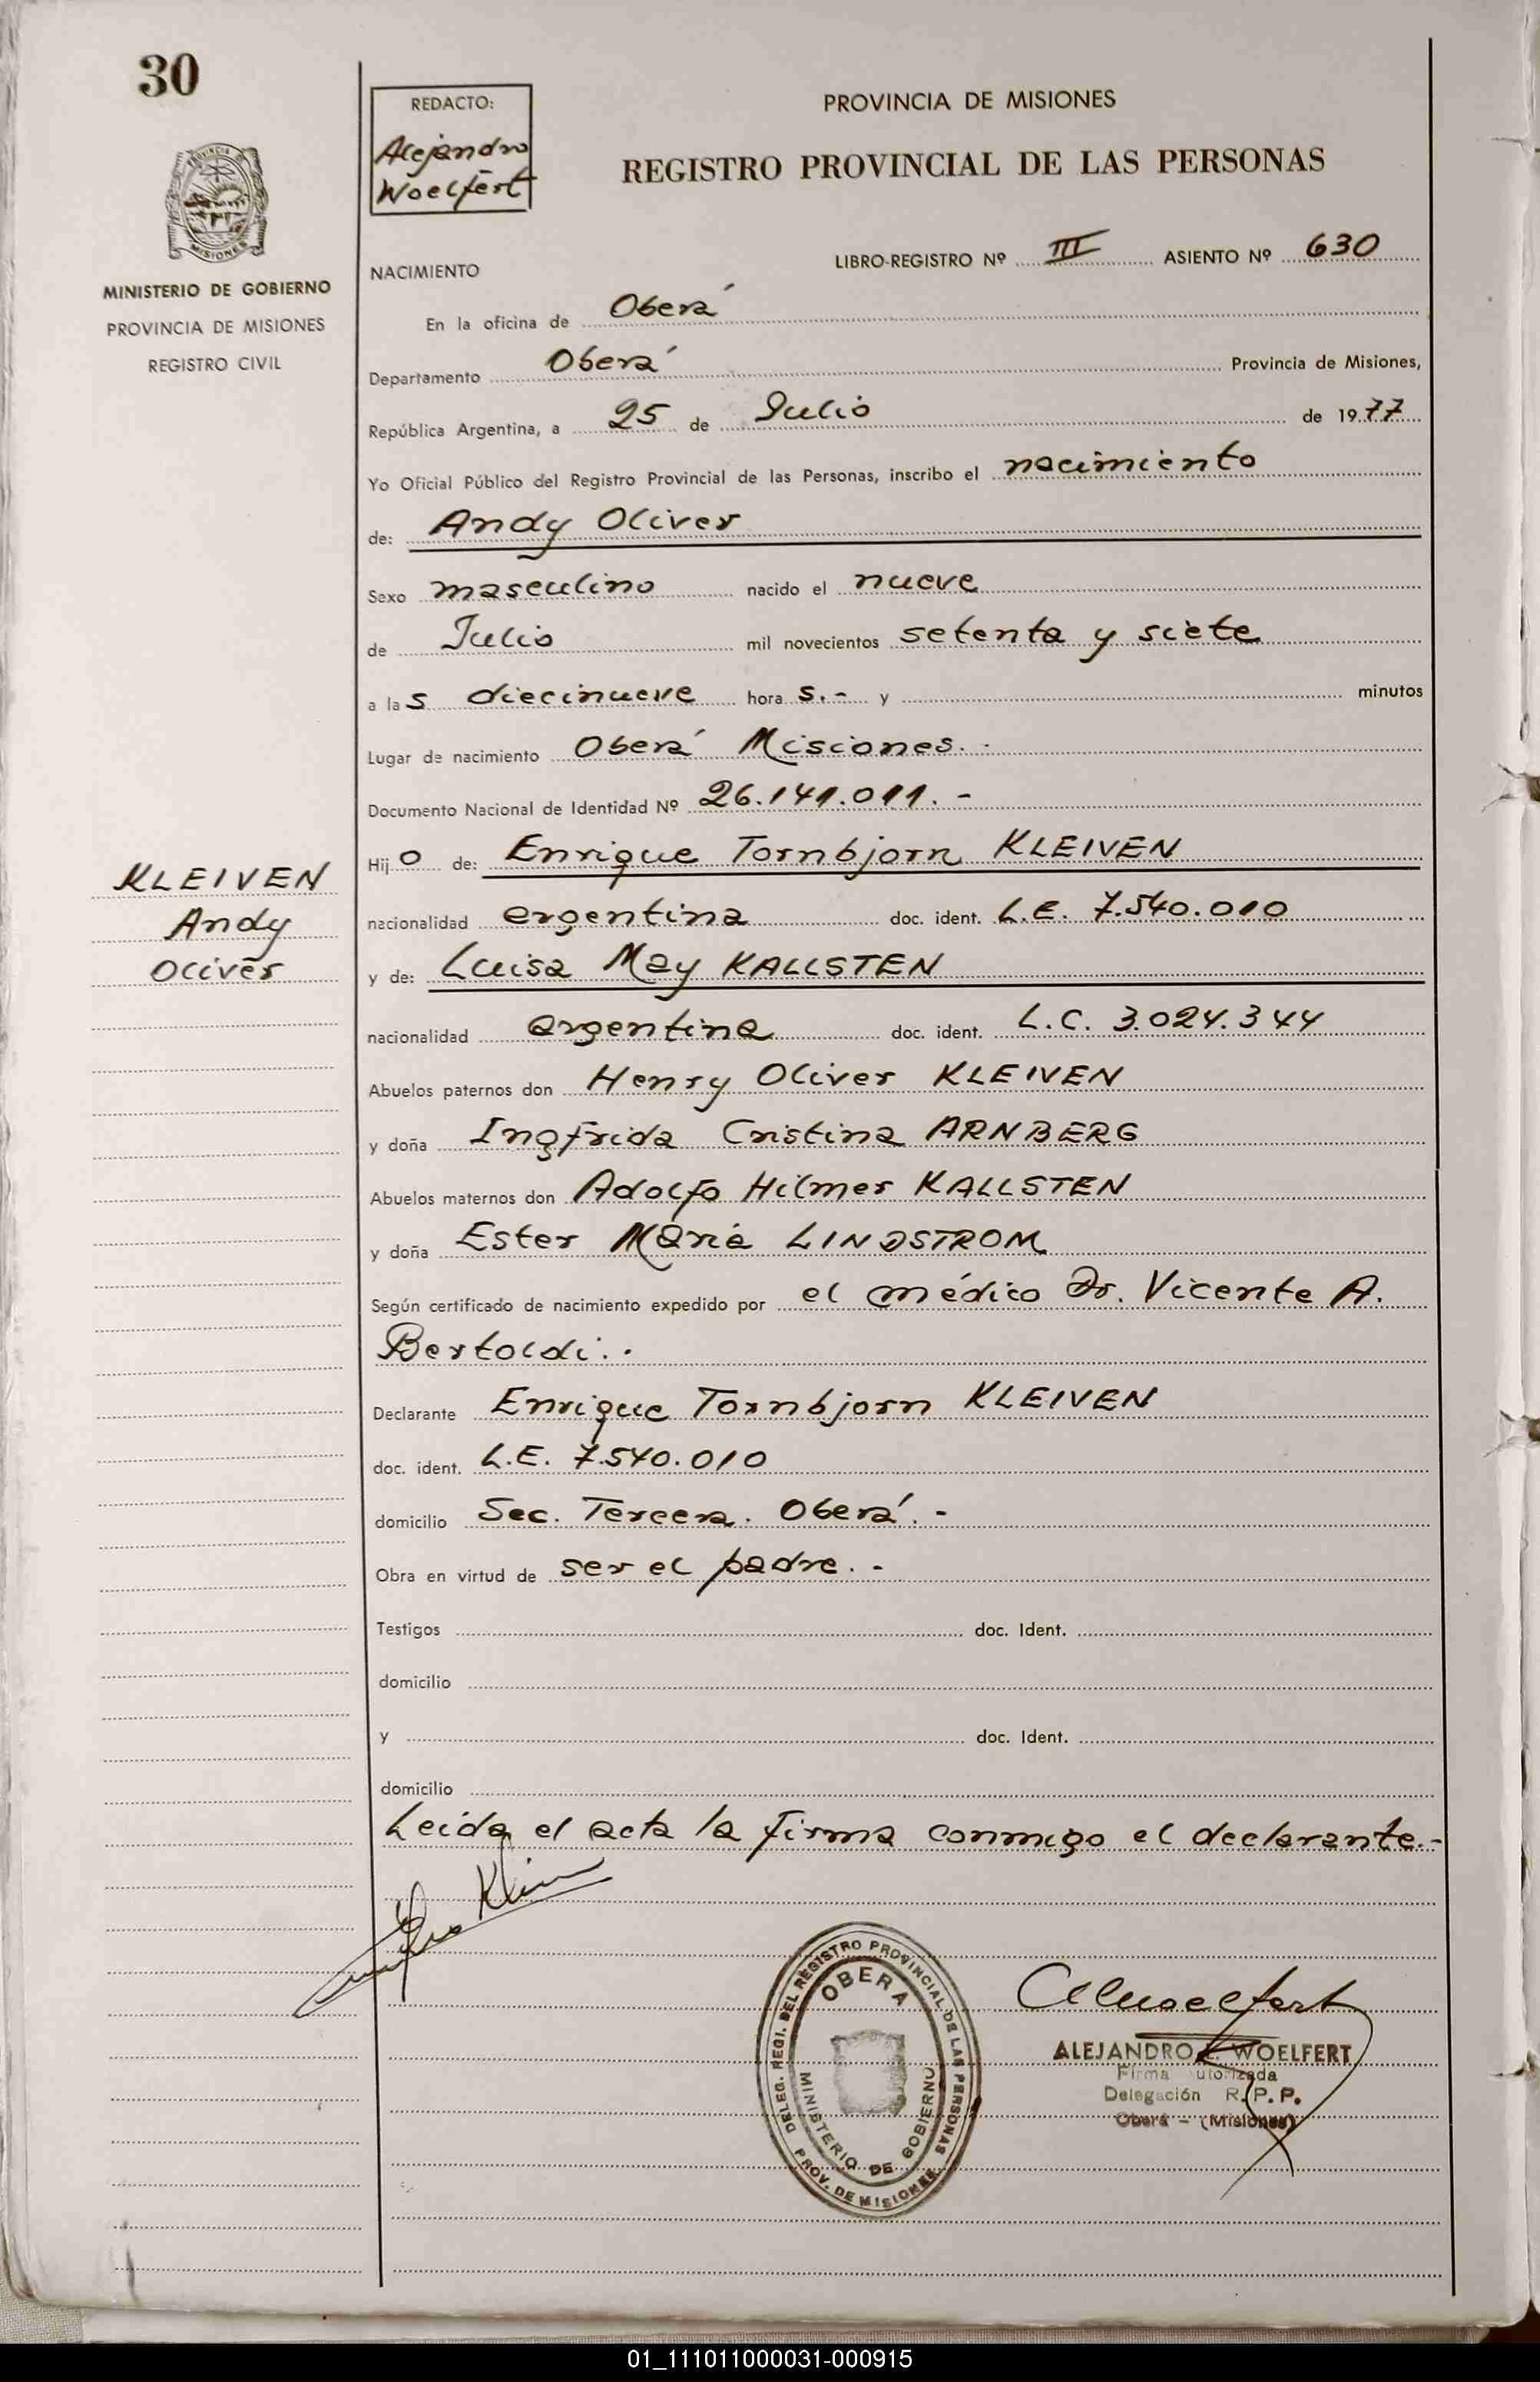 30
REDACTO:
Alejandro
Woelfert
PROVINCIA DE MISIONES
REGISTRO PROVINCIAL DE LAS PERSONAS
PROVINCIA DE
MISIONES
MINISTERIO DE GOBIERNO
PROVINCIA DE MISIONES
REGISTRO CIVIL
LIBRO-REGISTRO Nº III ASIENTO Nº 630
NACIMIENTO
En la oficina de Oberá
Departamento Oberá Provincia de Misiones,
República Argentina, a 25 de Julio de 1977
Yo Oficial Público del Registro Provincial de las Personas, inscribo el nacimiento
de: Andy Oliver
Sexo masculino nacido el nueve
de Julio mil novecientos setenta y siete
a las diecinueve horas.- y minutos
Lugar de nacimiento Oberá Misiones.-
Documento Nacional de Identidad Nº 26.141.011.-
Hijo de: Enrique Tornbjorn KLEIVEN
KLEIVEN
Andy
Oliver
nacionalidad argentina doc. ident. L.E. 7.540.010
y de: Luisa May KALLSTEN
nacionalidad argentina doc. ident. L.C. 3.024.344
Abuelos paternos don Henry Oliver KLEIVEN
y doña Ingfrida Cristina ARNBERG
Abuelos maternos don Adolfo Hilmer KALLSTEN
y doña Ester María LINDSTROM
Según certificado de nacimiento expedido por el médico Dr. Vicente A.
Bertoldi.-
Declarante Enrique Tornbjorn KLEIVEN
doc. ident. L.E. 7.540.010
domicilio Sec. Tercera. Oberá.-
Obra en virtud de ser el padre.-
Testigos doc. Ident.
domicilio
y doc. Ident.
domicilio
Leida el acta la firma conmigo el declarante.-
DELEG. REGI. DEL REGISTRO PROVINCIAL DE LAS PERSONAS
OBERA
MINISTERIO DE GOBIERNO
PROV. DE MISIONES
AWoelfert
ALEJANDRO WOELFERT
Firma Autorizada
Delegación R.P.P.
Oberá - (Misiones)
01_111011000031-000915